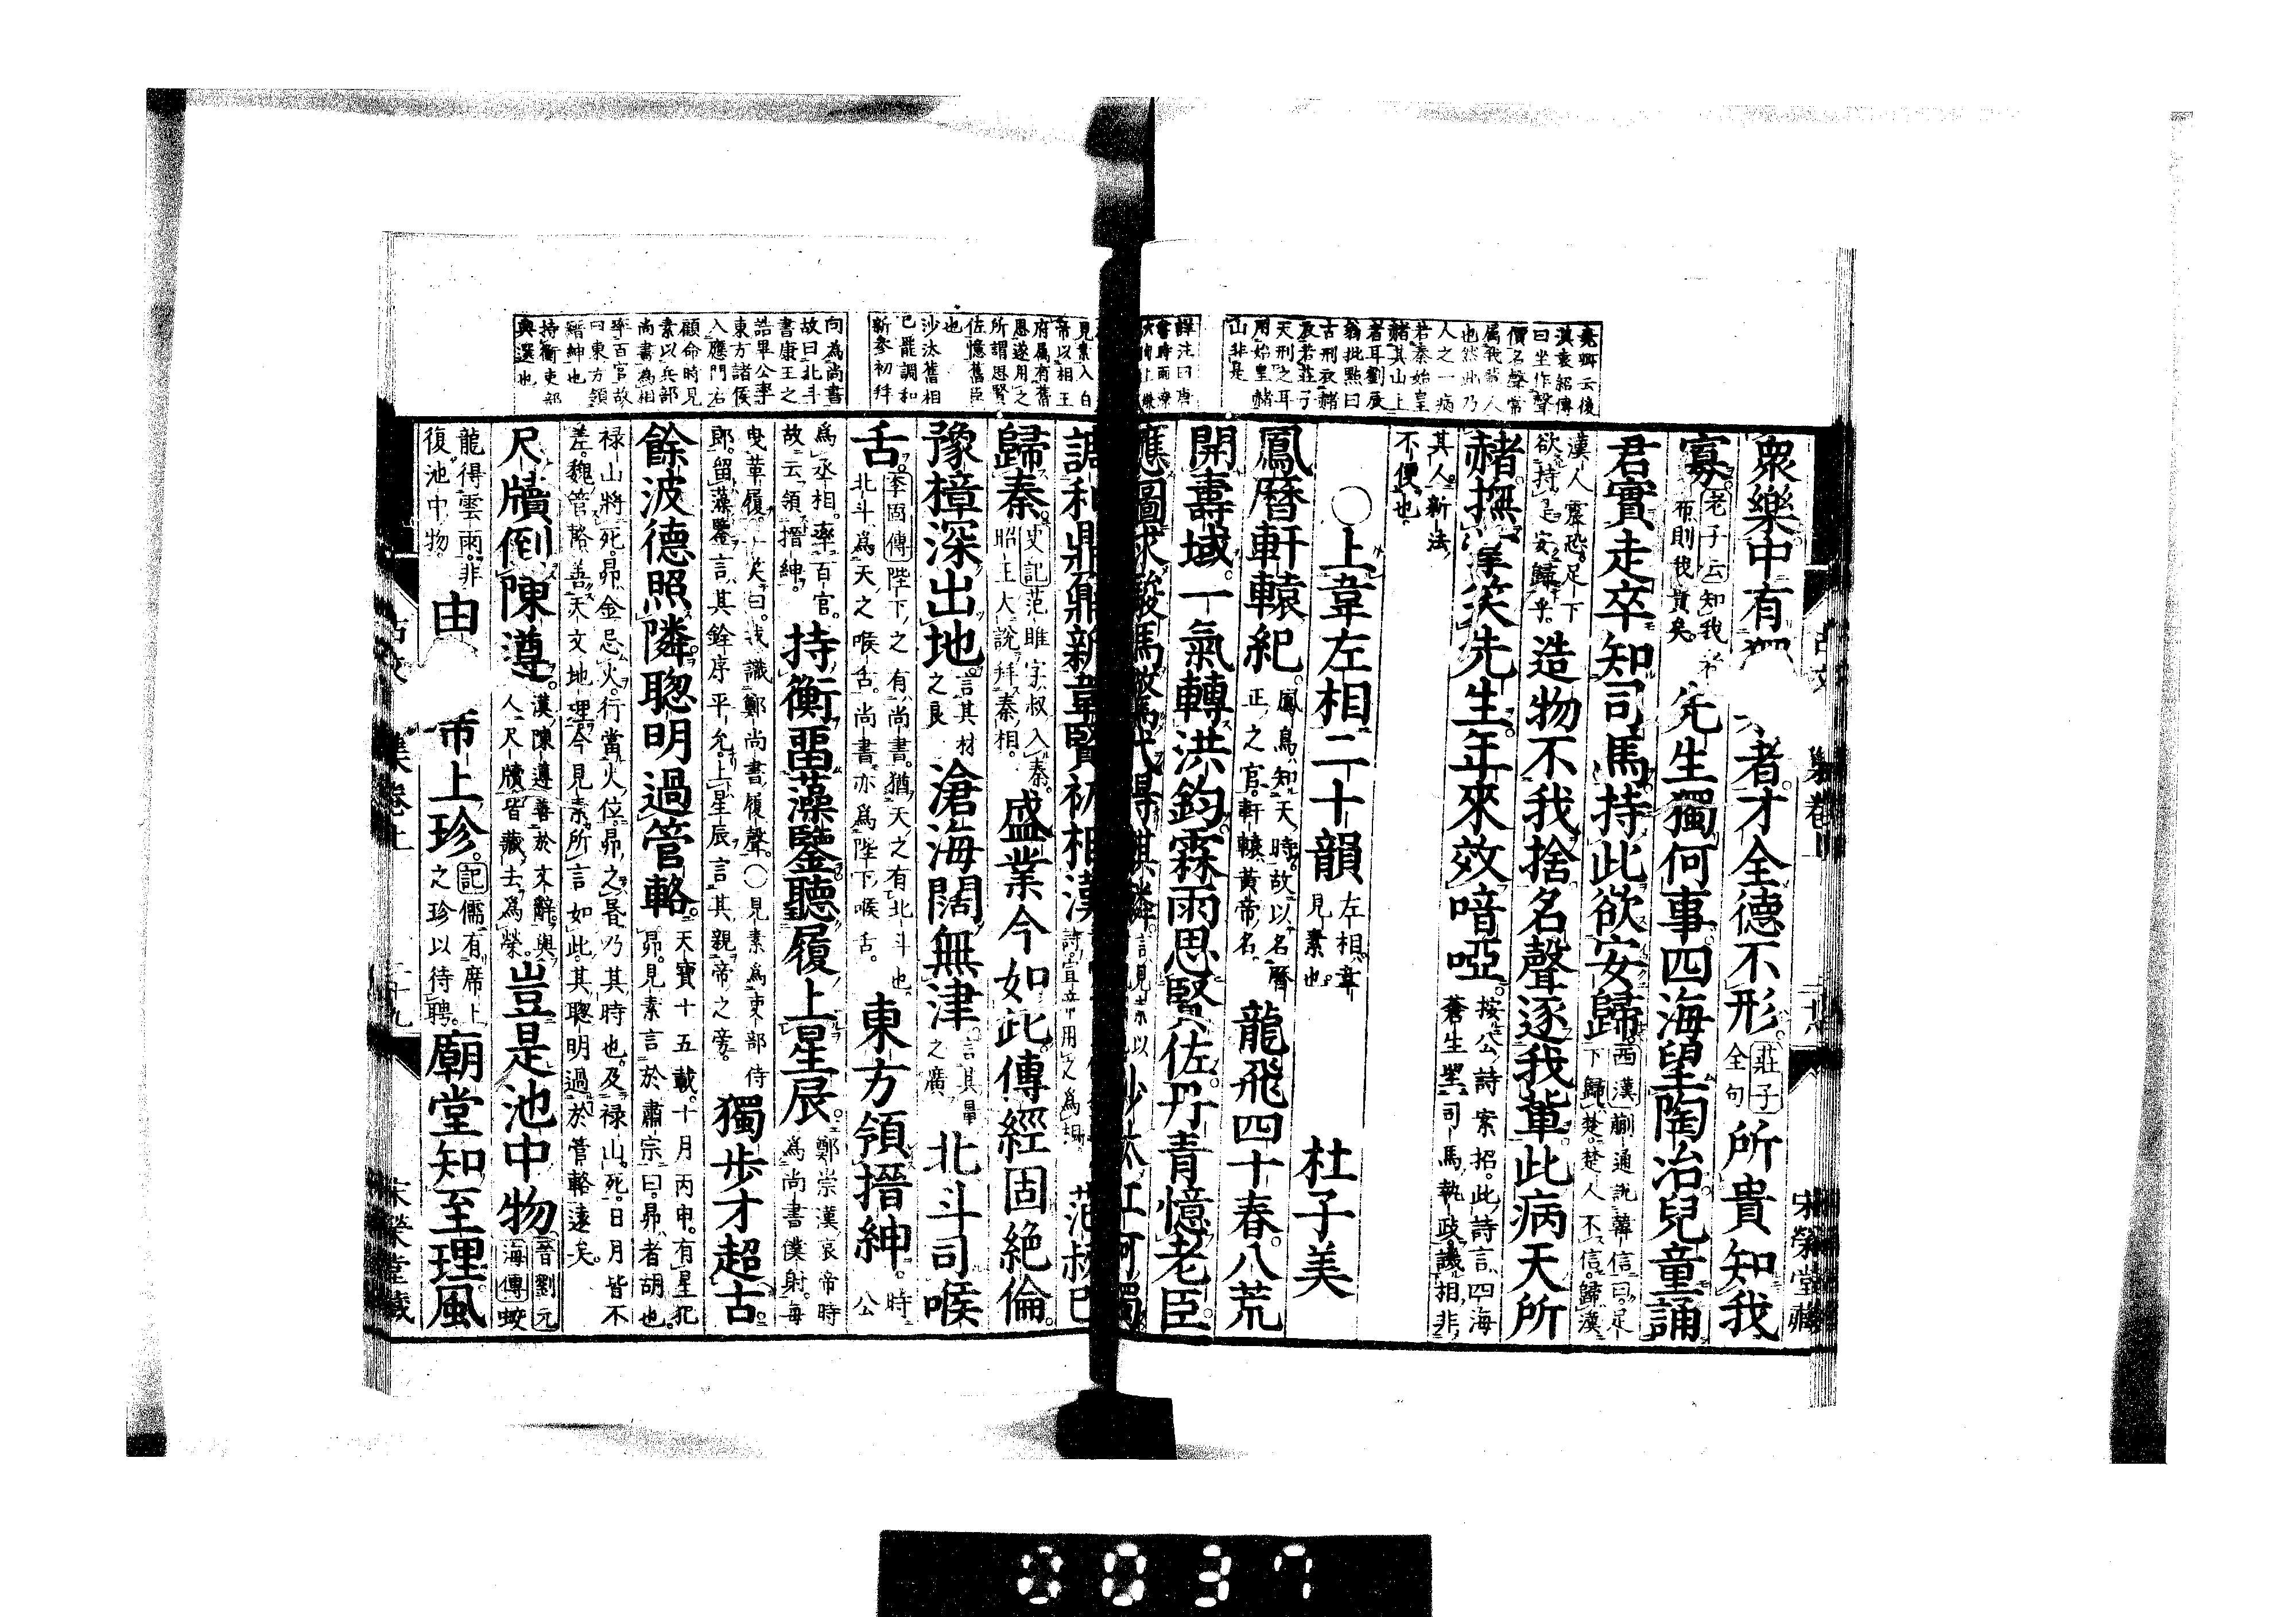 衆樂中有
者才全德不形
莊子
全句
所貴知我
寡
老子云知我
希則我貴矣
先生獨何事四海望陶冶兒童誦
君實走卒知司馬持此欲安歸
西漢蒯通說韓信曰足
下歸楚楚人不信歸漢
漢人震恐足下
欲持是安歸乎
造物不我捨名聲逐我輩此病天所
赭撫掌笑先生年來效喑啞
按公詩案招此詩言四海
蒼生望司馬執政譏相非
其人新法
不便也
○上韋左相二十韻
左相韋
見素也
杜子美
鳳曆軒轅紀
鳳鳥知天時故以名曆
正之官軒轅黃帝名
龍飛四十春八荒
開壽域一氣轉洪鈞霖雨思賢佐丹青憶老臣
應圖求駿馬驚代得騏驎
沙汰江河濁
調和鼎鼐新韋賢初相漢
范叔已
歸秦
史記范雎字叔入秦
昭王大說拜秦相
盛業今如此傳經固絕倫
豫樟深出地
言其材
之良
滄海闊無津
言其量
之廣
北斗司喉
舌
李固傳陛下之有尚書猶天之有北斗也
北斗爲天之喉舌尚書亦爲陛下喉舌
東方領搢紳
時
公
爲丞相率百官
故云領搢紳
持衡留藻鑒聽履上星辰
鄭崇漢哀帝時
爲尚書僕射每
曳革履上笑曰我識鄭尚書履聲○見素爲吏部侍
郎留藻鑒言其銓序平允上星辰言其親帝之旁
獨步才超古
餘波德照隣聰明過管輅
天寶十五載十月丙申有星犯
昴見素言於肅宗曰昴者胡也
祿山將死昴金忌火行當火位昴之昏乃其時也及祿山死日月皆不
差魏管輅善天文地理今見素所言如此其聰明過於管輅遠矣
尺牘倒陳遵
漢陳遵善於文辭與
人尺牘皆藏去爲榮
豈是池中物
晉劉元
海傳蛟
龍得雲雨非
復池中物
由
席上珍
記儒有席上
之珍以待聘
廟堂知至理風
宋榮堂藏
堯卿云後
漢袁紹傳
曰坐作聲
價名聲常
屬我輩人
也然此乃
人之一病
若秦始皇
赭其山上
者耳劉辰
翁批點曰
古刑衣赭
衣若莊子
天刑之耳
用始皇赭
山非是
見素入白
帝以相王
府屬有舊
恩遂用之
所謂思賢
佐憶舊臣
也
沙汰舊相
已罷調和
新參初拜
向爲尚書
故曰北斗
書康王之
誥畢公率
東方諸侯
入應門右
顧命時見
素以兵部
尚書爲相
率百官故
曰東方領
縉紳也
持衡吏部
典選也
0037